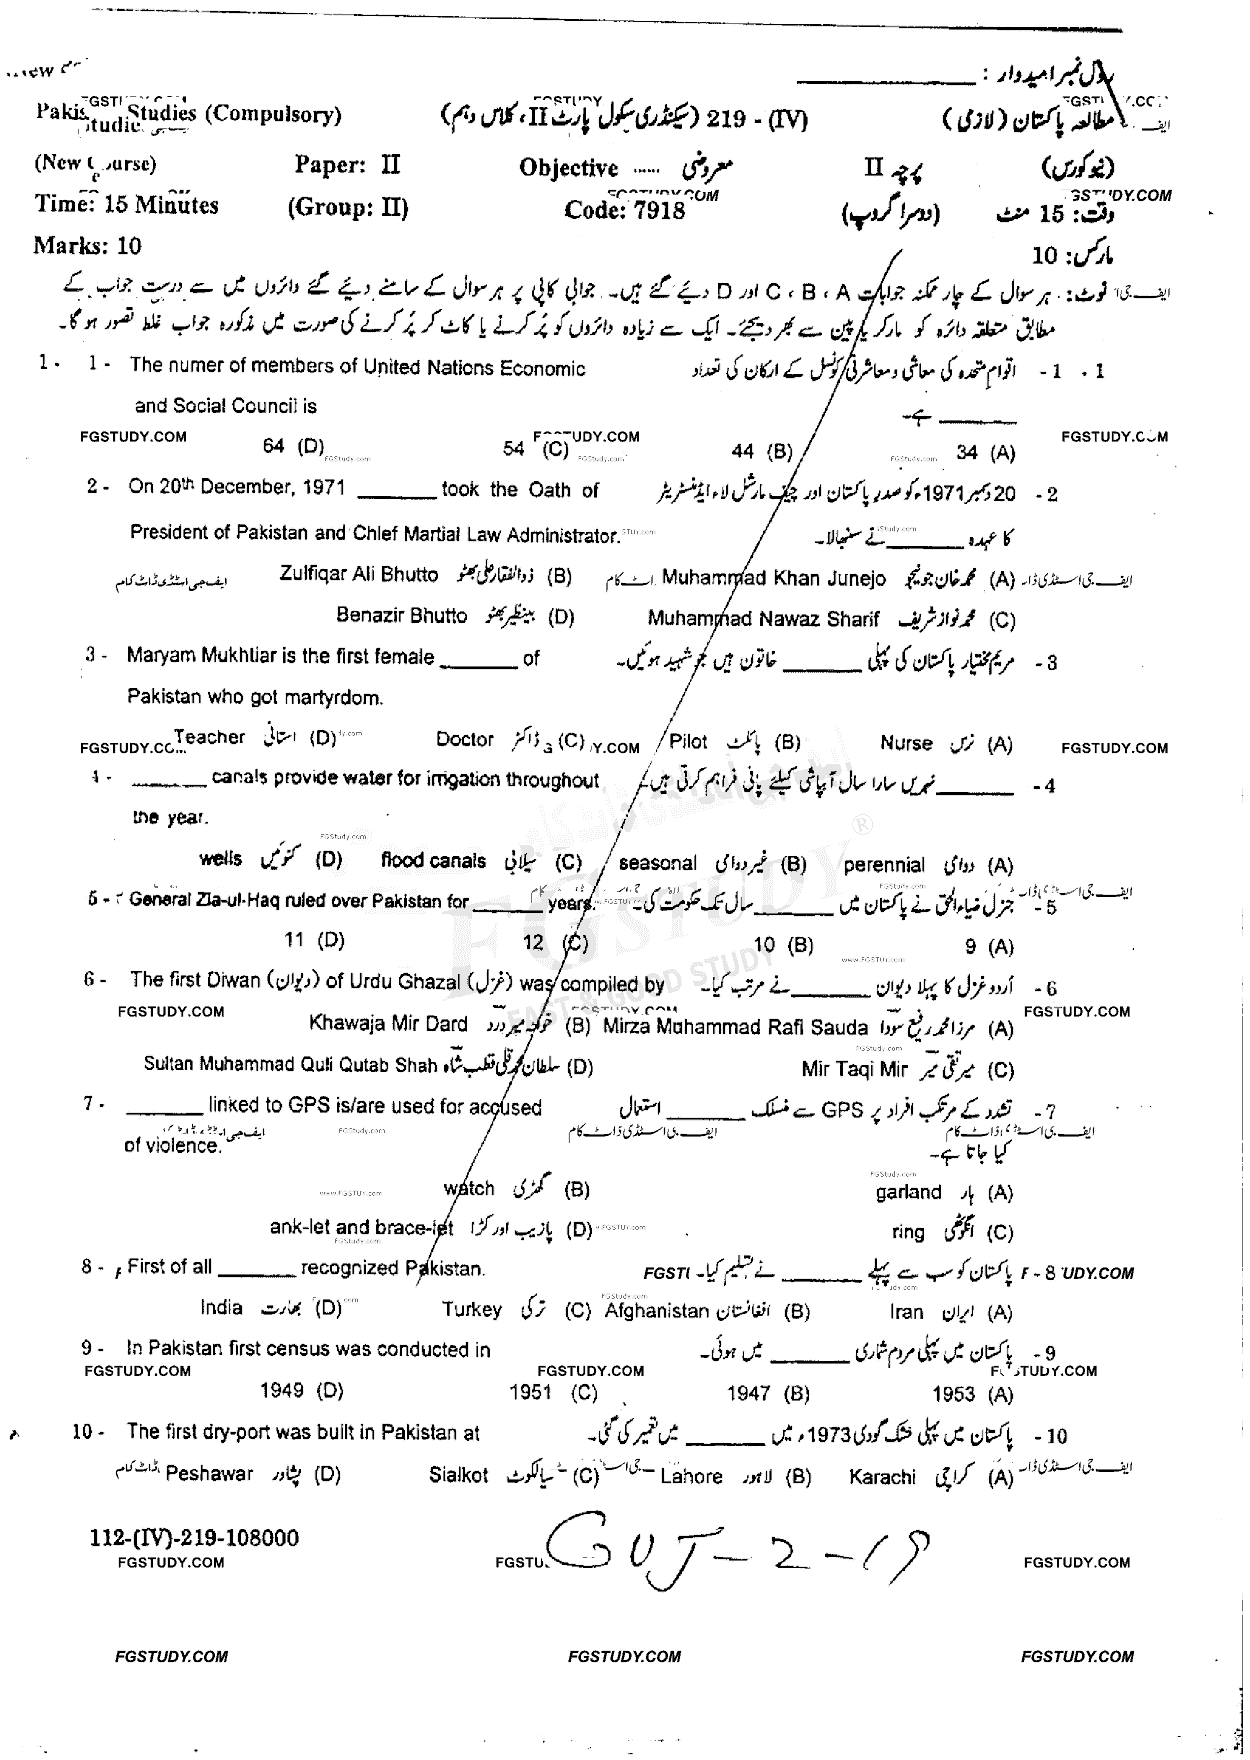 رول نمبر امیدوار : ____________
Pakistan Studies (Compulsory) 219 - (IV) (سیکنڈری سکول پارٹ II، کلاس دہم) مطالعہ پاکستان (لازمی)
(New Course) Paper: II Objective ...... معروضی پرچہ II (نیو کورس)
Time: 15 Minutes (Group: II) Code: 7918 (دوسرا گروپ) وقت: 15 منٹ
Marks: 10 مارکس: 10
نوٹ: ہر سوال کے چار ممکنہ جوابات C ، B ، A اور D دیئے گئے ہیں۔ جوابی کاپی پر ہر سوال کے سامنے دیئے گئے دائروں میں سے درست جواب کے
مطابق متعلقہ دائرہ کو مارکر یا پین سے بھر دیجئے۔ ایک سے زیادہ دائروں کو پُر کرنے یا کاٹ کر پُر کرنے کی صورت میں مذکورہ جواب غلط تصور ہو گا۔
1. 1 - The numer of members of United Nations Economic اقوام متحدہ کی معاشی و معاشرتی کونسل کے ارکان کی تعداد - 1 . 1
and Social Council is ________ ہے۔
FGSTUDY.COM 64 (D) 54 (C) FGSTUDY.COM 44 (B) 34 (A) FGSTUDY.COM
2 - On 20th December, 1971 ________ took the Oath of 20 دسمبر 1971ء کو صدر پاکستان اور چیف مارشل لاء ایڈمنسٹریٹر - 2
President of Pakistan and Chief Martial Law Administrator. کا عہدہ ________ نے سنبھالا۔
Zulfiqar Ali Bhutto ذوالفقار علی بھٹو (B) Muhammad Khan Junejo محمد خان جونیجو (A)
Benazir Bhutto بینظیر بھٹو (D) Muhammad Nawaz Sharif محمد نواز شریف (C)
3 - Maryam Mukhtiar is the first female ________ of مریم مختیار پاکستان کی پہلی ________ خاتون ہیں جو شہید ہوئیں۔ - 3
Pakistan who got martyrdom.
Teacher استانی (D) Doctor ڈاکٹر (C) Pilot پائلٹ (B) Nurse نرس (A) FGSTUDY.COM
4 - ________ canals provide water for irrigation throughout ________ نہریں سارا سال آبپاشی کیلئے پانی فراہم کرتی ہیں۔ - 4
the year.
wells کنوئیں (D) flood canals سیلابی (C) seasonal غیر دوامی (B) perennial دوامی (A)
5 - General Zia-ul-Haq ruled over Pakistan for ________ years. جنرل ضیاء الحق نے پاکستان میں ________ سال تک حکومت کی۔ - 5
11 (D) 12 (C) 10 (B) 9 (A)
6 - The first Diwan (دیوان) of Urdu Ghazal (غزل) was compiled by اُردو غزل کا پہلا دیوان ________ نے مرتب کیا۔ - 6
FGSTUDY.COM Khawaja Mir Dard خواجہ میر درد (B) Mirza Muhammad Rafi Sauda مرزا محمد رفیع سودا (A) FGSTUDY.COM
Sultan Muhammad Quli Qutab Shah سلطان محمد قلی قطب شاہ (D) Mir Taqi Mir میر تقی میر (C)
7 - ________ linked to GPS is/are used for accused تشدد کے مرتکب افراد پر GPS سے منسلک ________ استعمال - 7
of violence. کیا جاتا ہے۔
watch گھڑی (B) garland ہار (A)
ank-let and brace-let پازیب اور کڑا (D) ring انگوٹھی (C)
8 - First of all ________ recognized Pakistan. پاکستان کو سب سے پہلے ________ نے تسلیم کیا۔ - 8
India بھارت (D) Turkey ترکی (C) Afghanistan افغانستان (B) Iran ایران (A)
9 - In Pakistan first census was conducted in پاکستان میں پہلی مردم شماری ________ میں ہوئی۔ - 9
FGSTUDY.COM FGSTUDY.COM FGSTUDY.COM
1949 (D) 1951 (C) 1947 (B) 1953 (A)
10 - The first dry-port was built in Pakistan at پاکستان میں پہلی خشک گودی 1973ء میں ________ میں تعمیر کی گئی۔ - 10
Peshawar پشاور (D) Sialkot سیالکوٹ (C) Lahore لاہور (B) Karachi کراچی (A)
112-(IV)-219-108000 GUJ-2-19
FGSTUDY.COM FGSTUDY.COM
FGSTUDY.COM FGSTUDY.COM FGSTUDY.COM